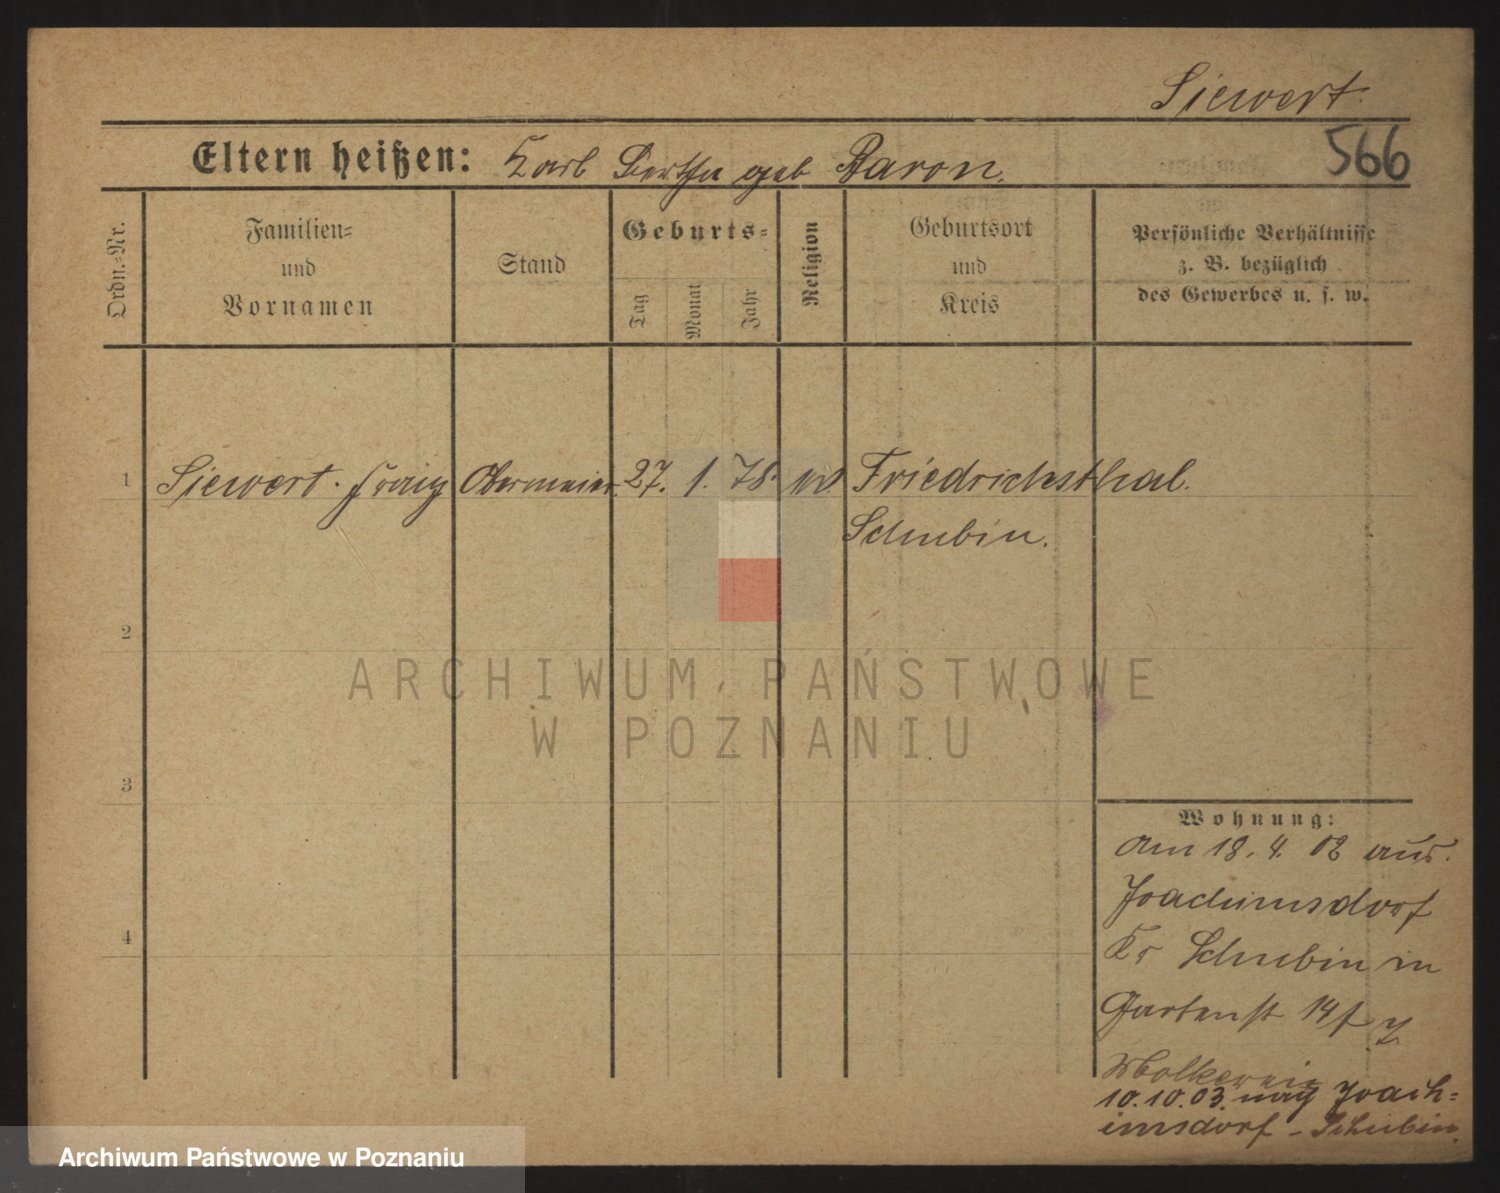 Siewert.
566
Eltern heißen: Karl Bertha geb Baron.
Ordn.-Nr.
Familien- und Vornamen
Stand
Geburts-
Tag
Monat
Jahr
Religion
Geburtsort und Kreis
Persönliche Verhältnisse z. B. bezüglich des Gewerbes u. s. w.
1 Siewert. Franz 27. 1. 78. Friedrichsthal.
Schubin.
2
3
4
Wohnung:
Am 18. 4. 02 aus.
Joachimsdorf
Kr Schubin in
Gartenst 14
Molkerei
10.10.03. nach Joach-
imsdorf - Schubin.
ARCHIWUM PAŃSTWOWE
W POZNANIU
Archiwum Państwowe w Poznaniu